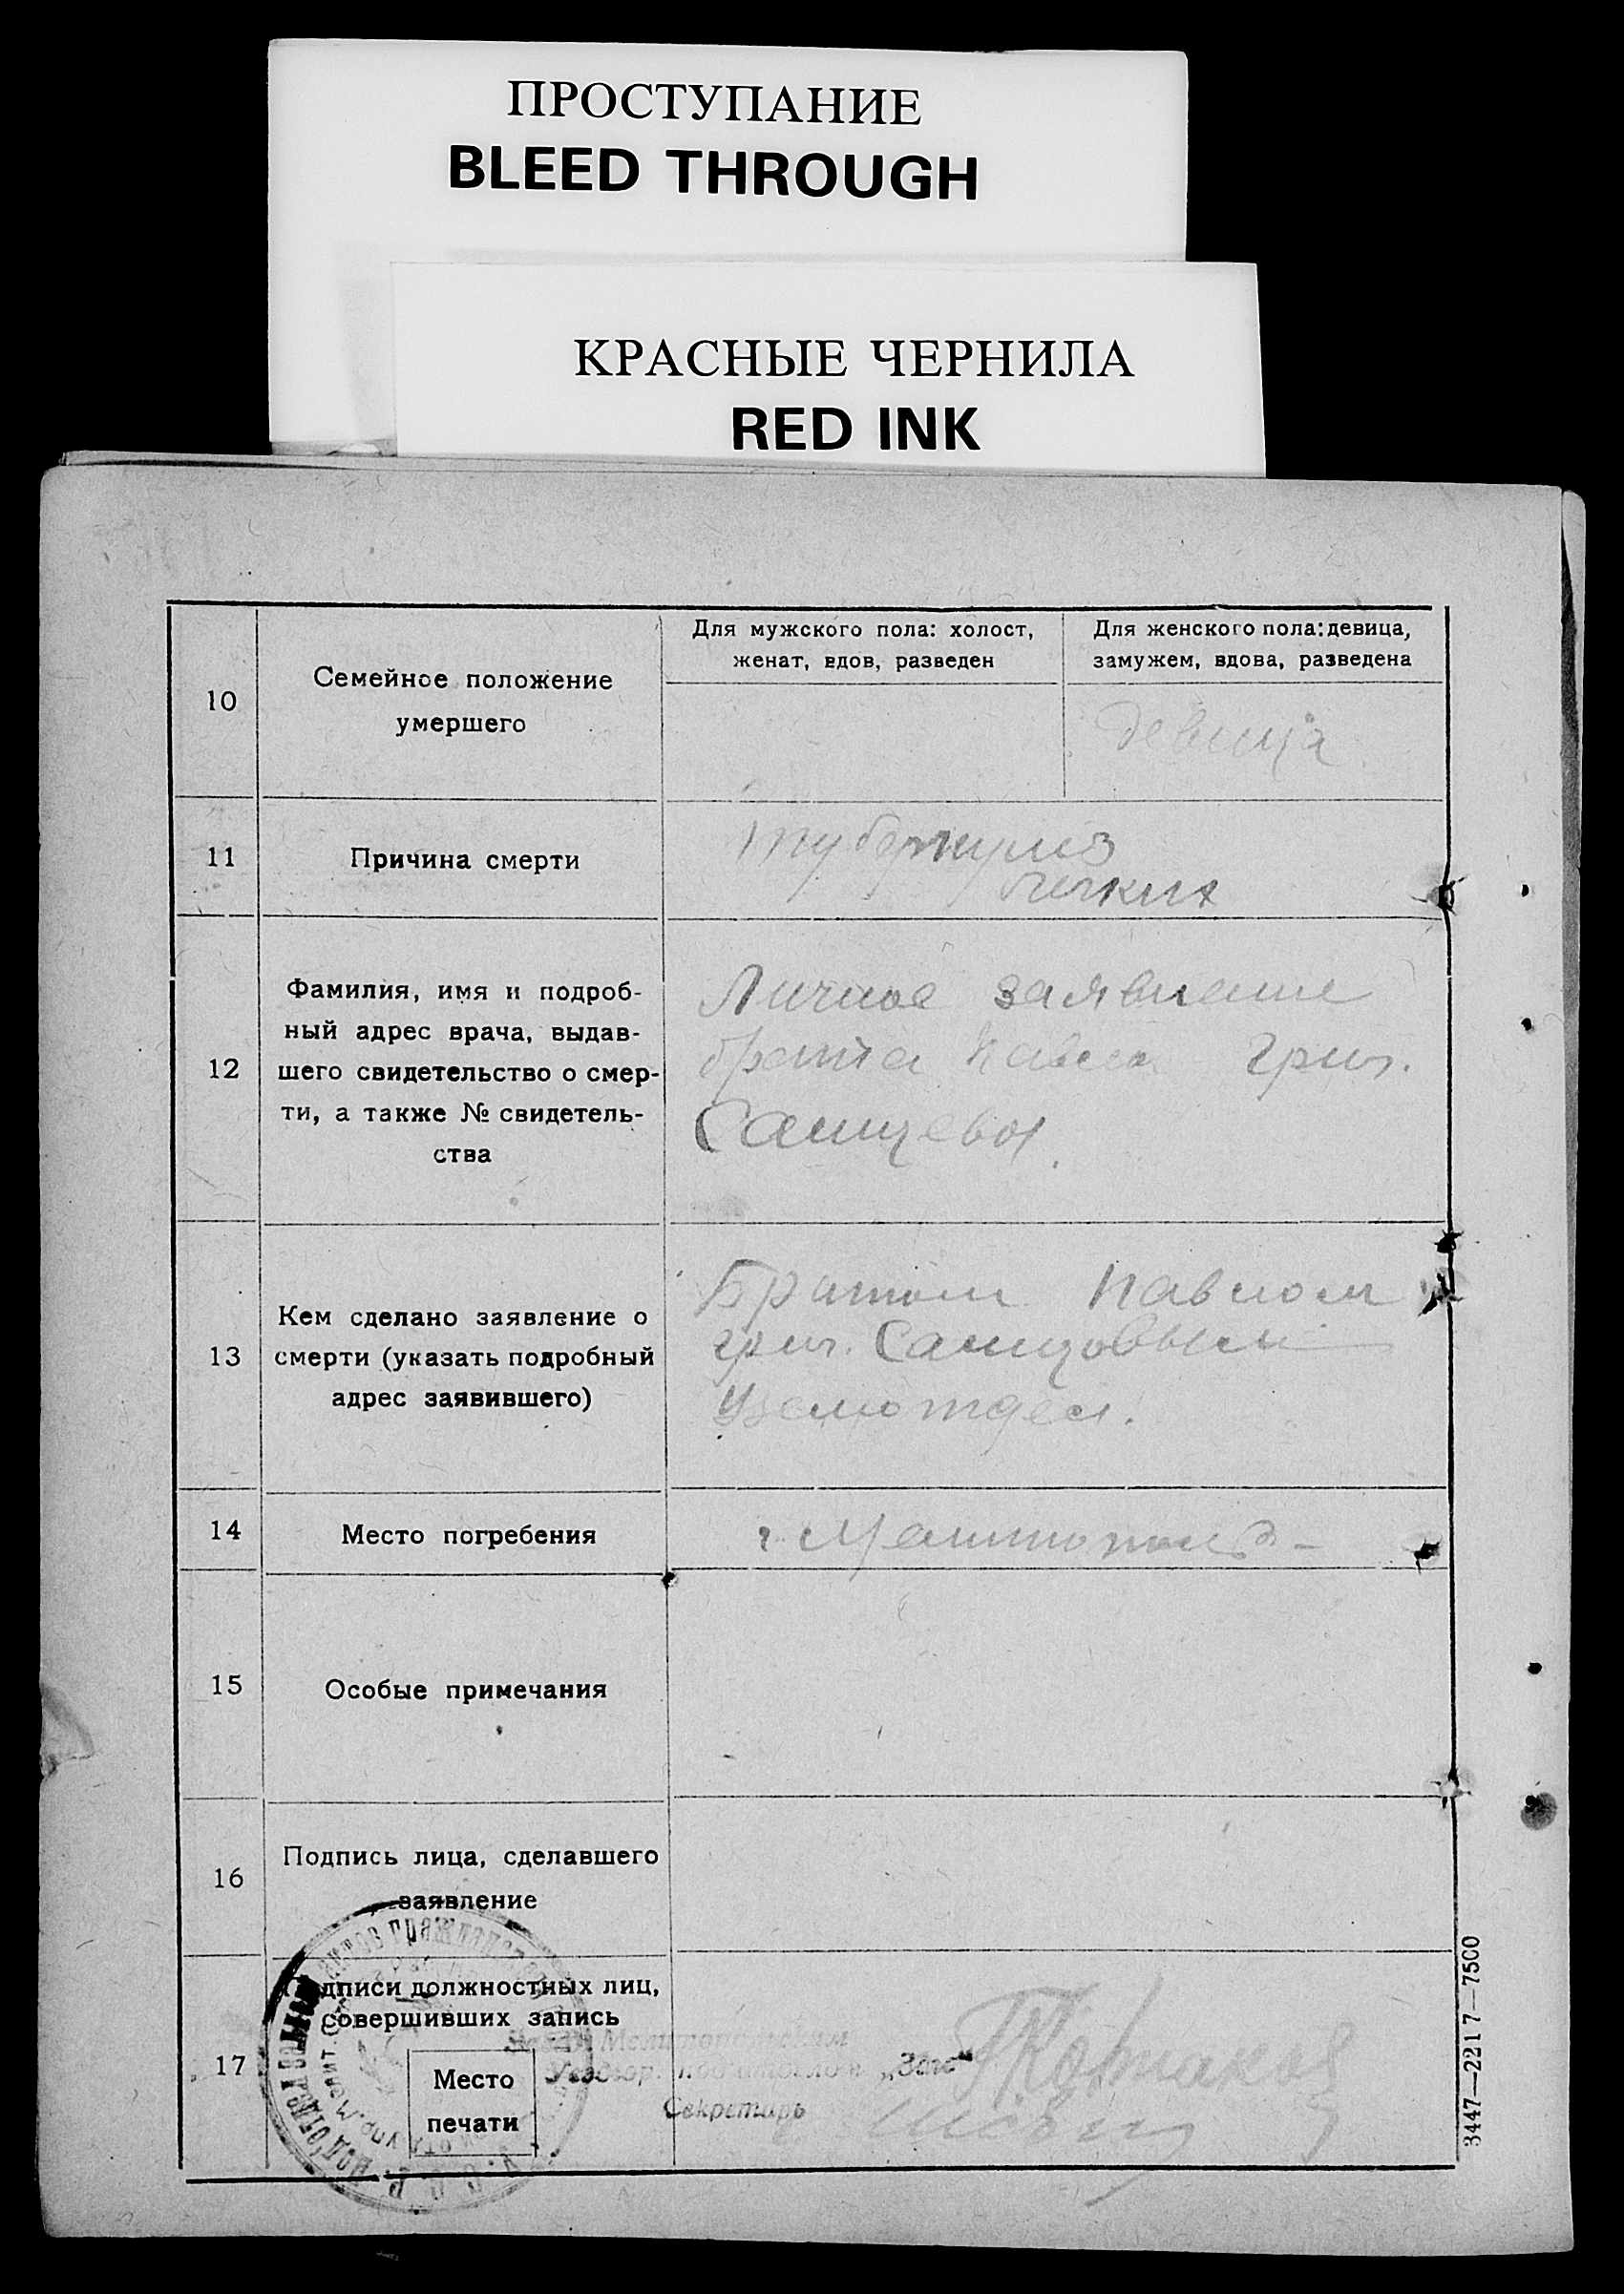 ПРОСТУПАНИЕ
BLEED THROUGH
КРАСНЫЕ ЧЕРНИЛА
RED INK
10
Семейное положение
умершего
Для мужского пола: холост,
женат, вдов, разведен
Для женского пола: девица,
замужем, вдова, разведена
девица
11
Причина смерти
туберкулиз
легких
12
Фамилия, имя и подроб-
ный адрес врача, выдав-
шего свидетельство о смер-
ти, а также № свидетель-
ства
Личное заявление
брата Павла Григ.
13
Кем сделано заявление о
смерти (указать подробный
адрес заявившего)
Братом Павлом
григ.
14
Место погребения
г. Мелитополь
15
Особые примечания
16
Подпись лица, сделавшего
заявление
17
Подписи должностных лиц,
совершивших запись
Место
печати
„Загс“
Секретарь
3447—2217—7500